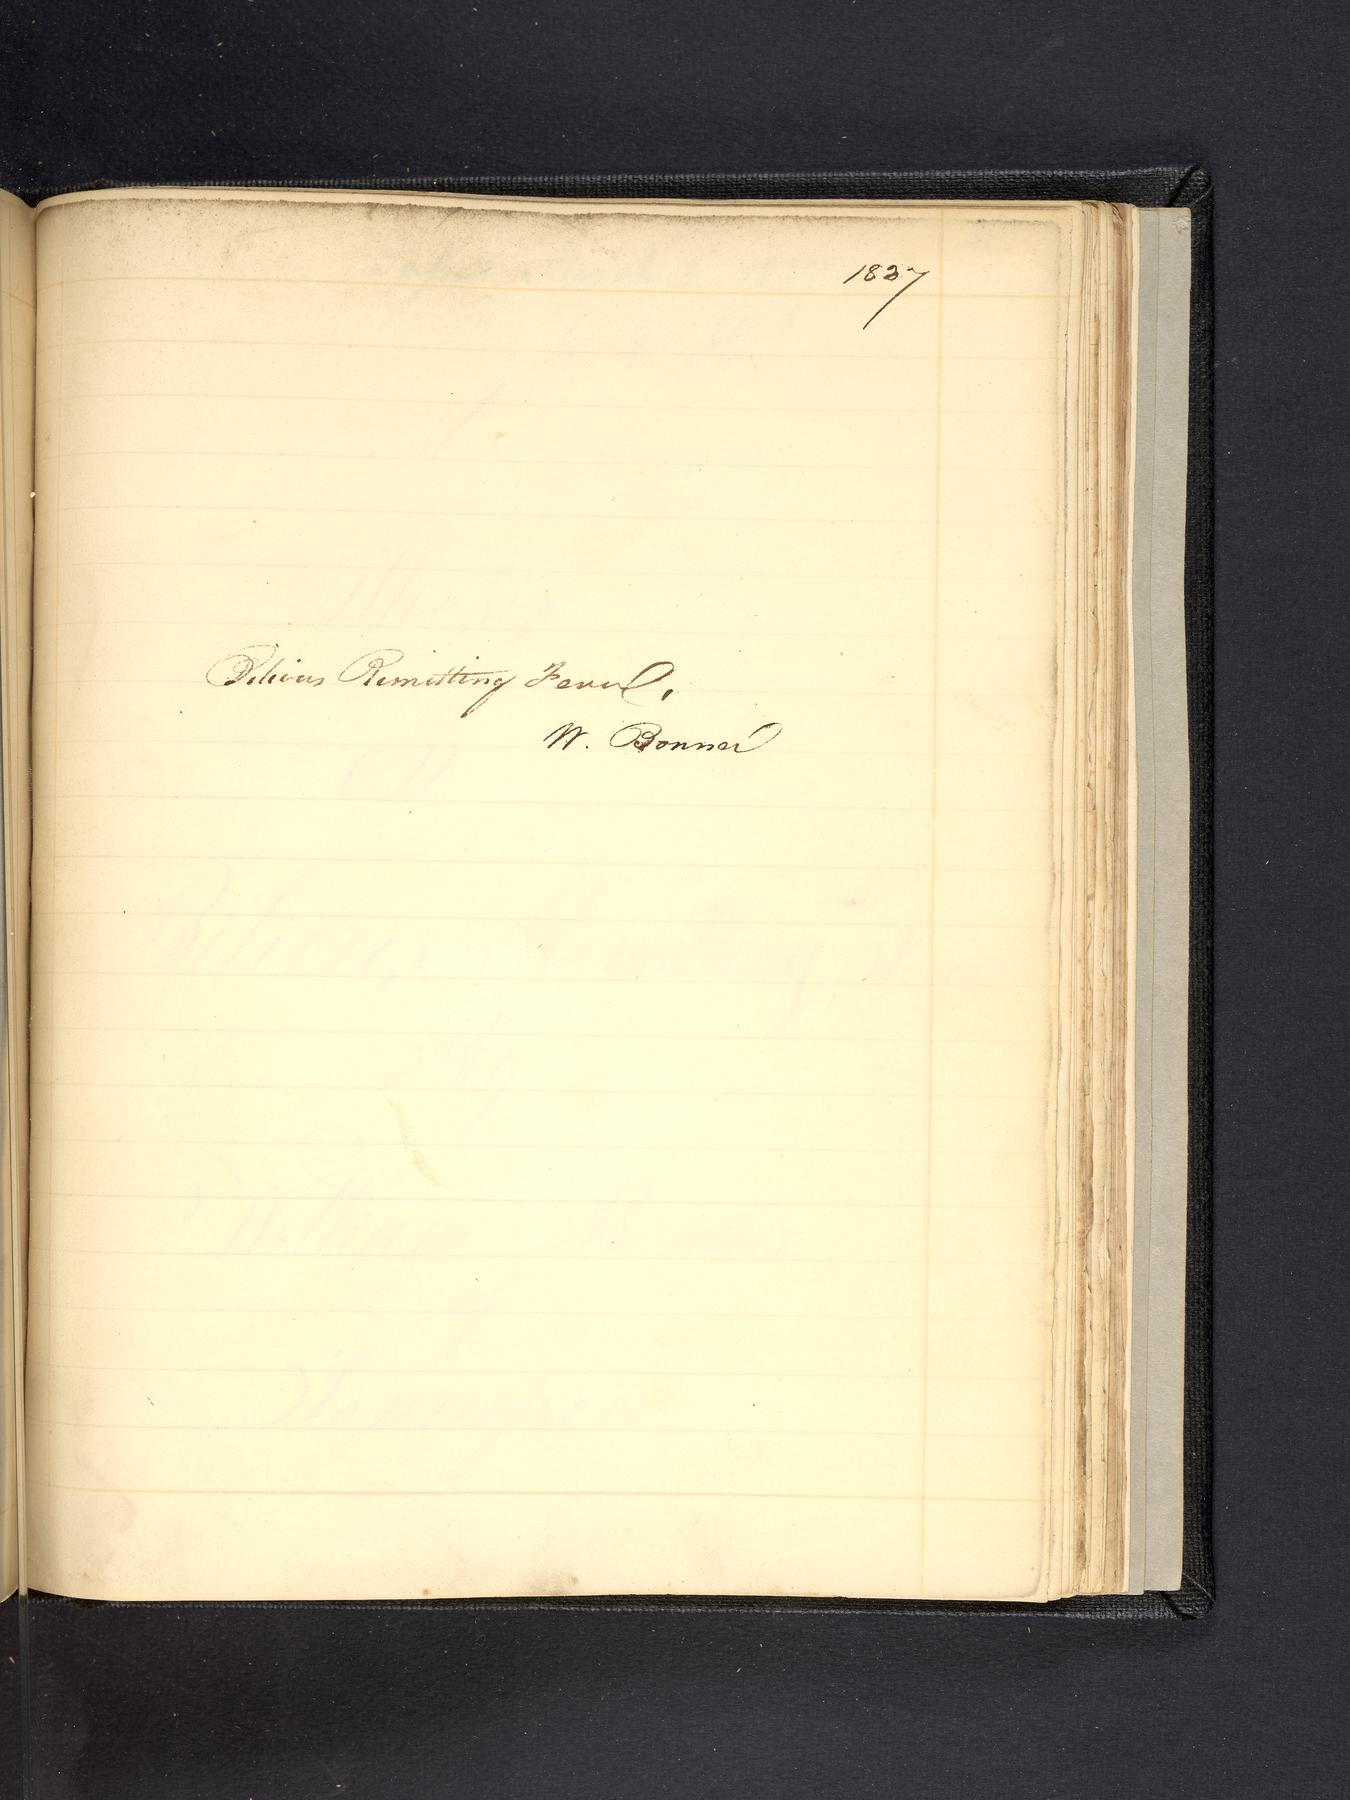 1837
Bilious Remitting Fever,
W. Bonner